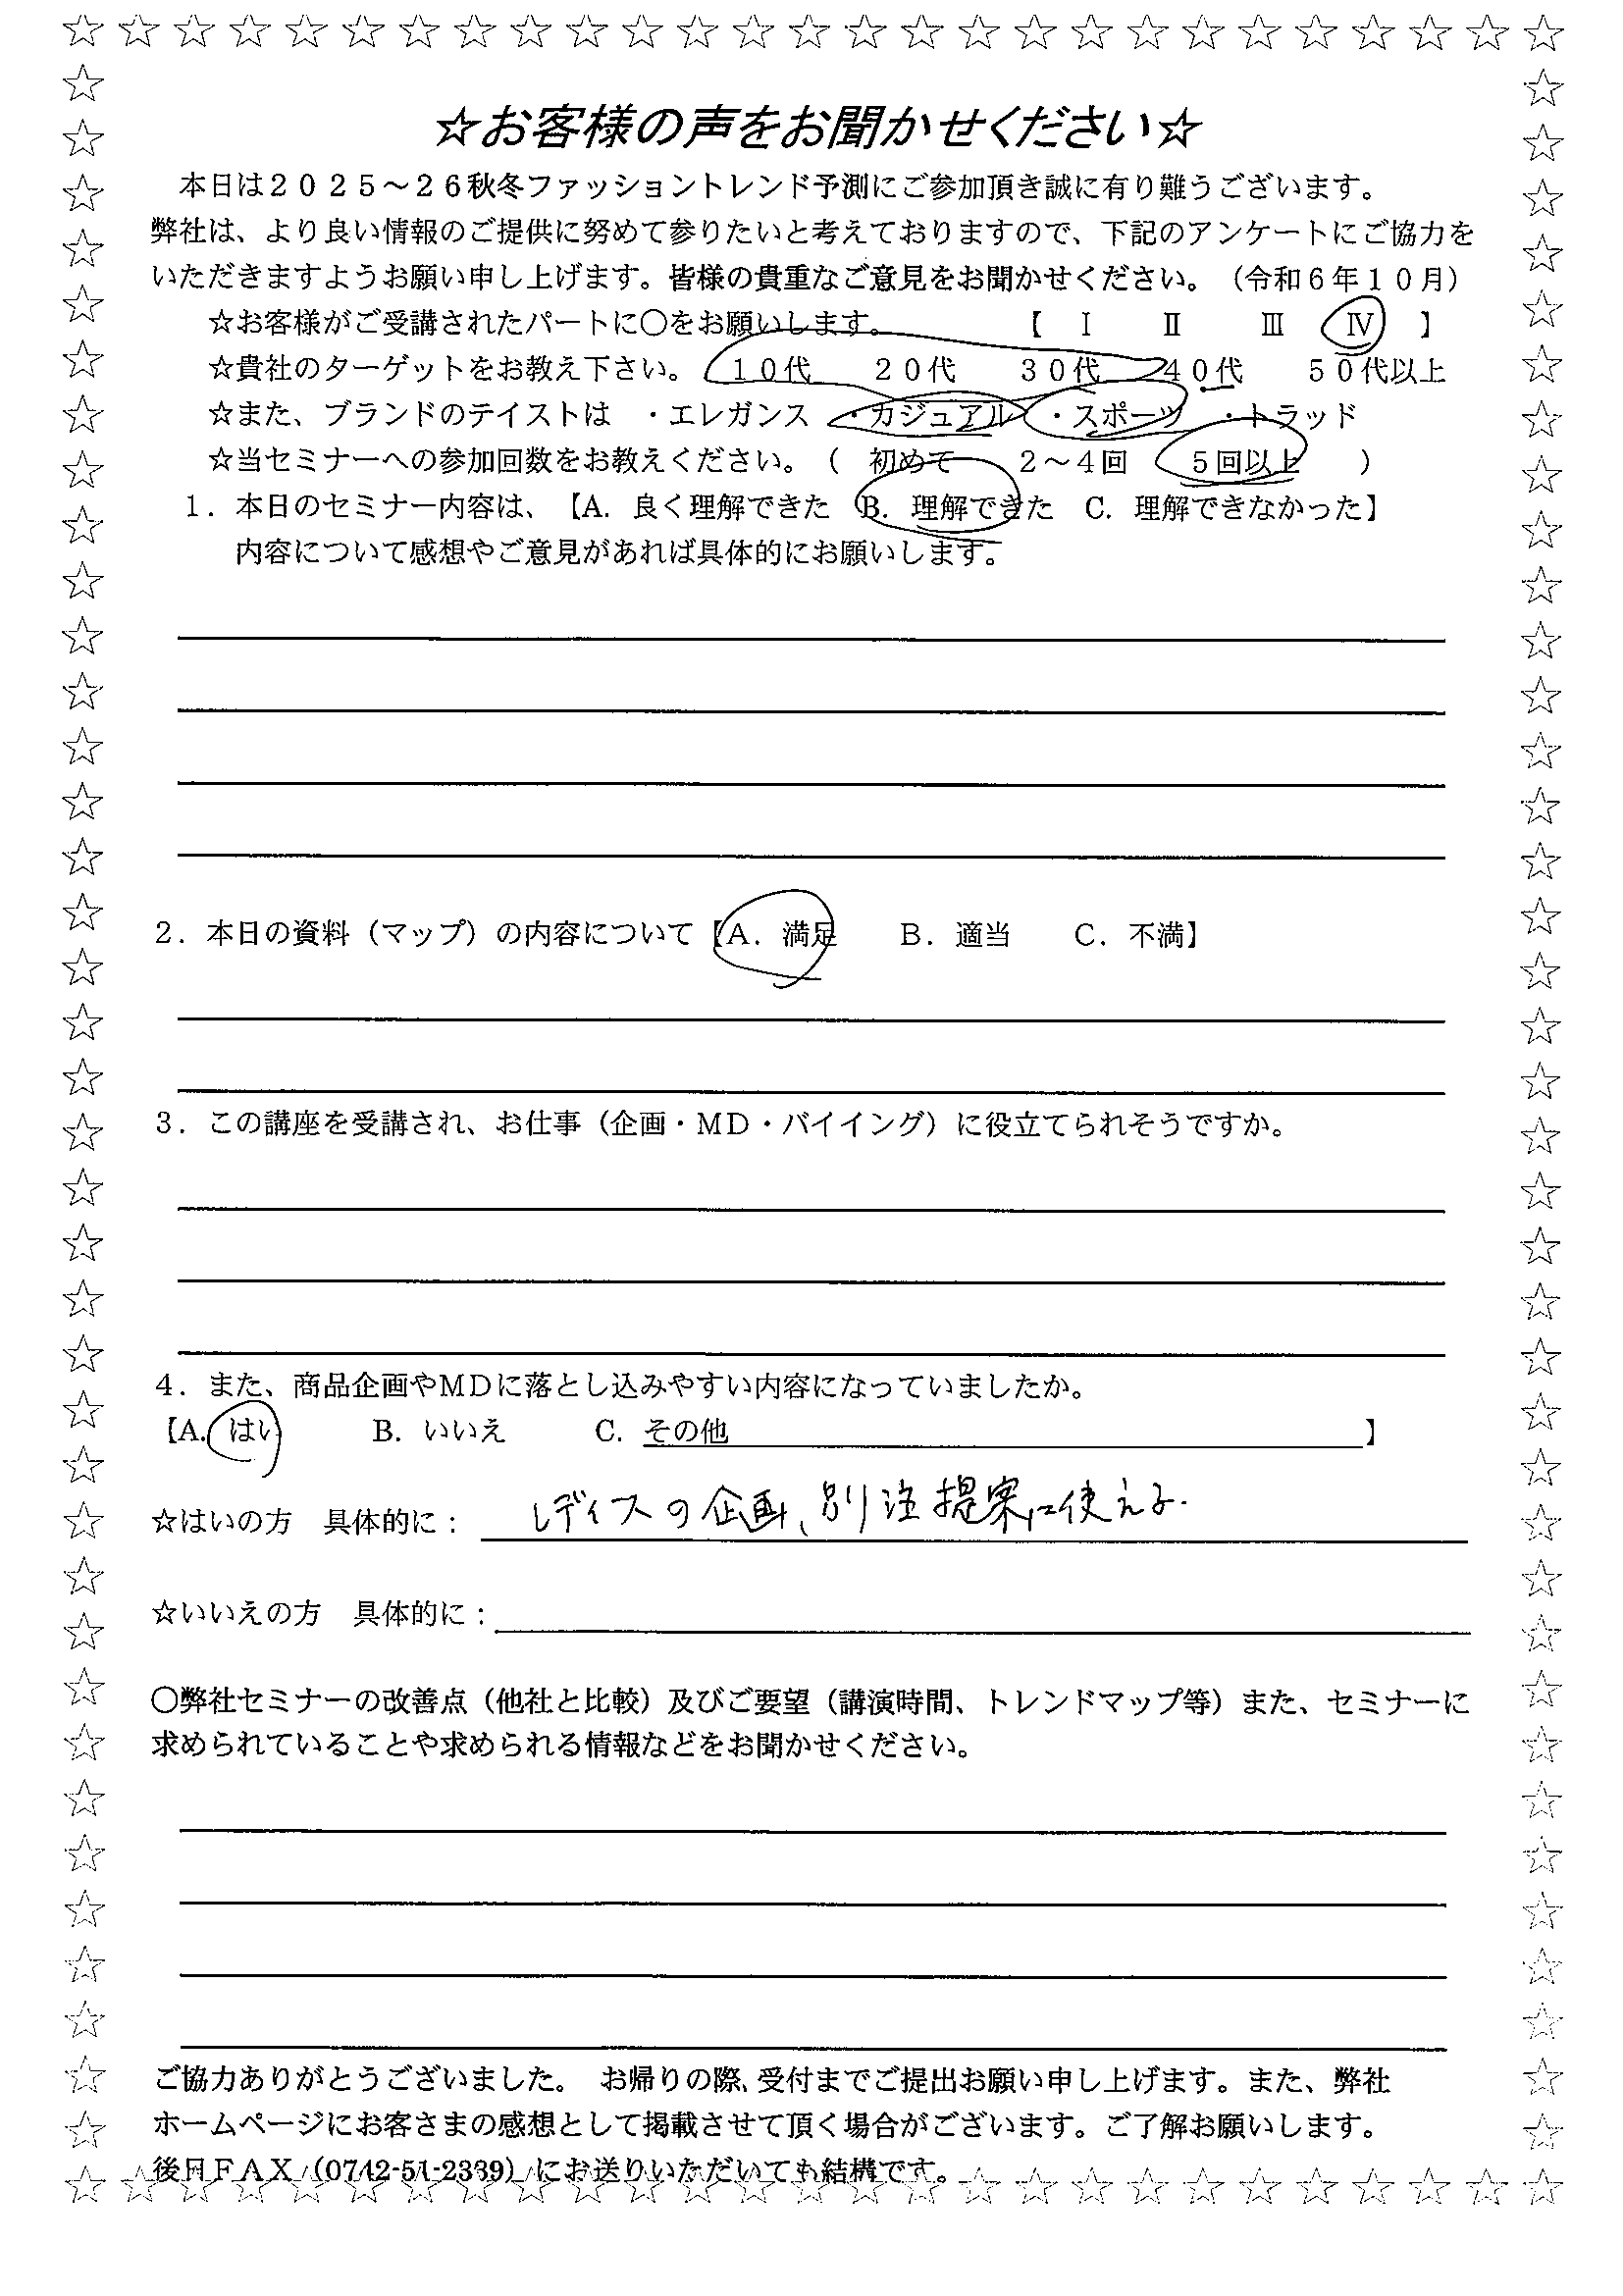 ☆お客様の声をお聞かせください☆
本日は2025～26秋冬ファッショントレンド予測にご参加頂き誠に有り難うございます。
弊社は、より良い情報のご提供に努めて参りたいと考えておりますので、下記のアンケートにご協力を
いただきますようお願い申し上げます。皆様の貴重なご意見をお聞かせください。（令和6年10月）
☆お客様がご受講されたパートに〇をお願いします。 【 Ⅰ Ⅱ Ⅲ Ⅳ 】
☆貴社のターゲットをお教え下さい。 10代 20代 30代 40代 50代以上
☆また、ブランドのテイストは ・エレガンス ・カジュアル ・スポーツ ・トラッド
☆当セミナーへの参加回数をお教えください。（ 初めて 2～4回 5回以上 ）
1．本日のセミナー内容は、【A．良く理解できた B．理解できた C．理解できなかった】
内容について感想やご意見があれば具体的にお願いします。
2．本日の資料（マップ）の内容について【A．満足 B．適当 C．不満】
3．この講座を受講され、お仕事（企画・MD・バイイング）に役立てられそうですか。
4．また、商品企画やMDに落とし込みやすい内容になっていましたか。
【A．はい B．いいえ C．その他 】
☆はいの方 具体的に： レディスの企画、別注提案に使える。
☆いいえの方 具体的に：
〇弊社セミナーの改善点（他社と比較）及びご要望（講演時間、トレンドマップ等）また、セミナーに
求められていることや求められる情報などをお聞かせください。
ご協力ありがとうございました。 お帰りの際、受付までご提出お願い申し上げます。また、弊社
ホームページにお客さまの感想として掲載させて頂く場合がございます。ご了解お願いします。
後日FAX（0742-51-2339）にお送りいただいても結構です。